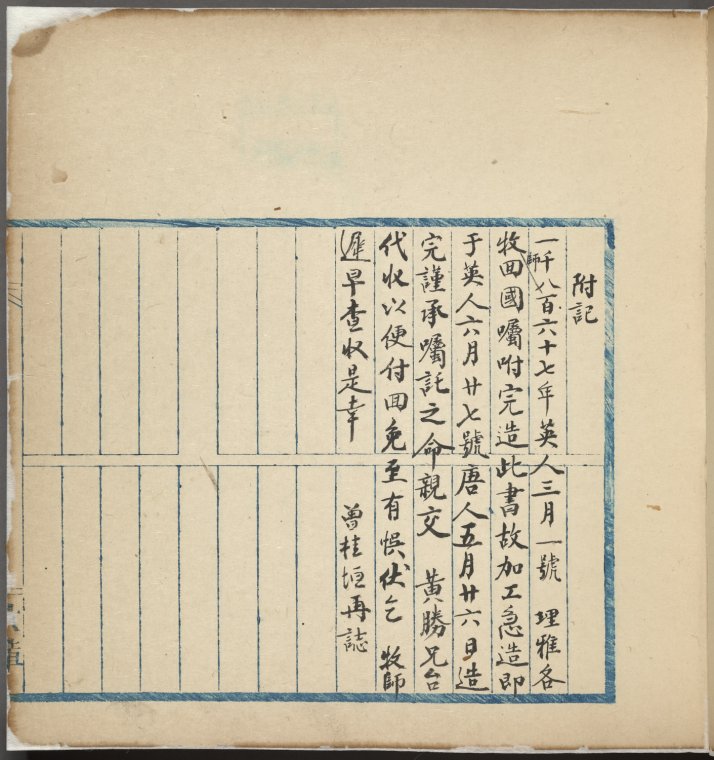 附記
一千八百六十七年英人三月一號 理雅各
牧師回國囑咐完造此書故加工急造即
于英人六月廿七號唐人五月廿六日造
完謹承囑託之命親交 黃勝兄台
代收以便付回免至有悞伏乞 牧師
遲早查收是幸 曾桂垣再誌